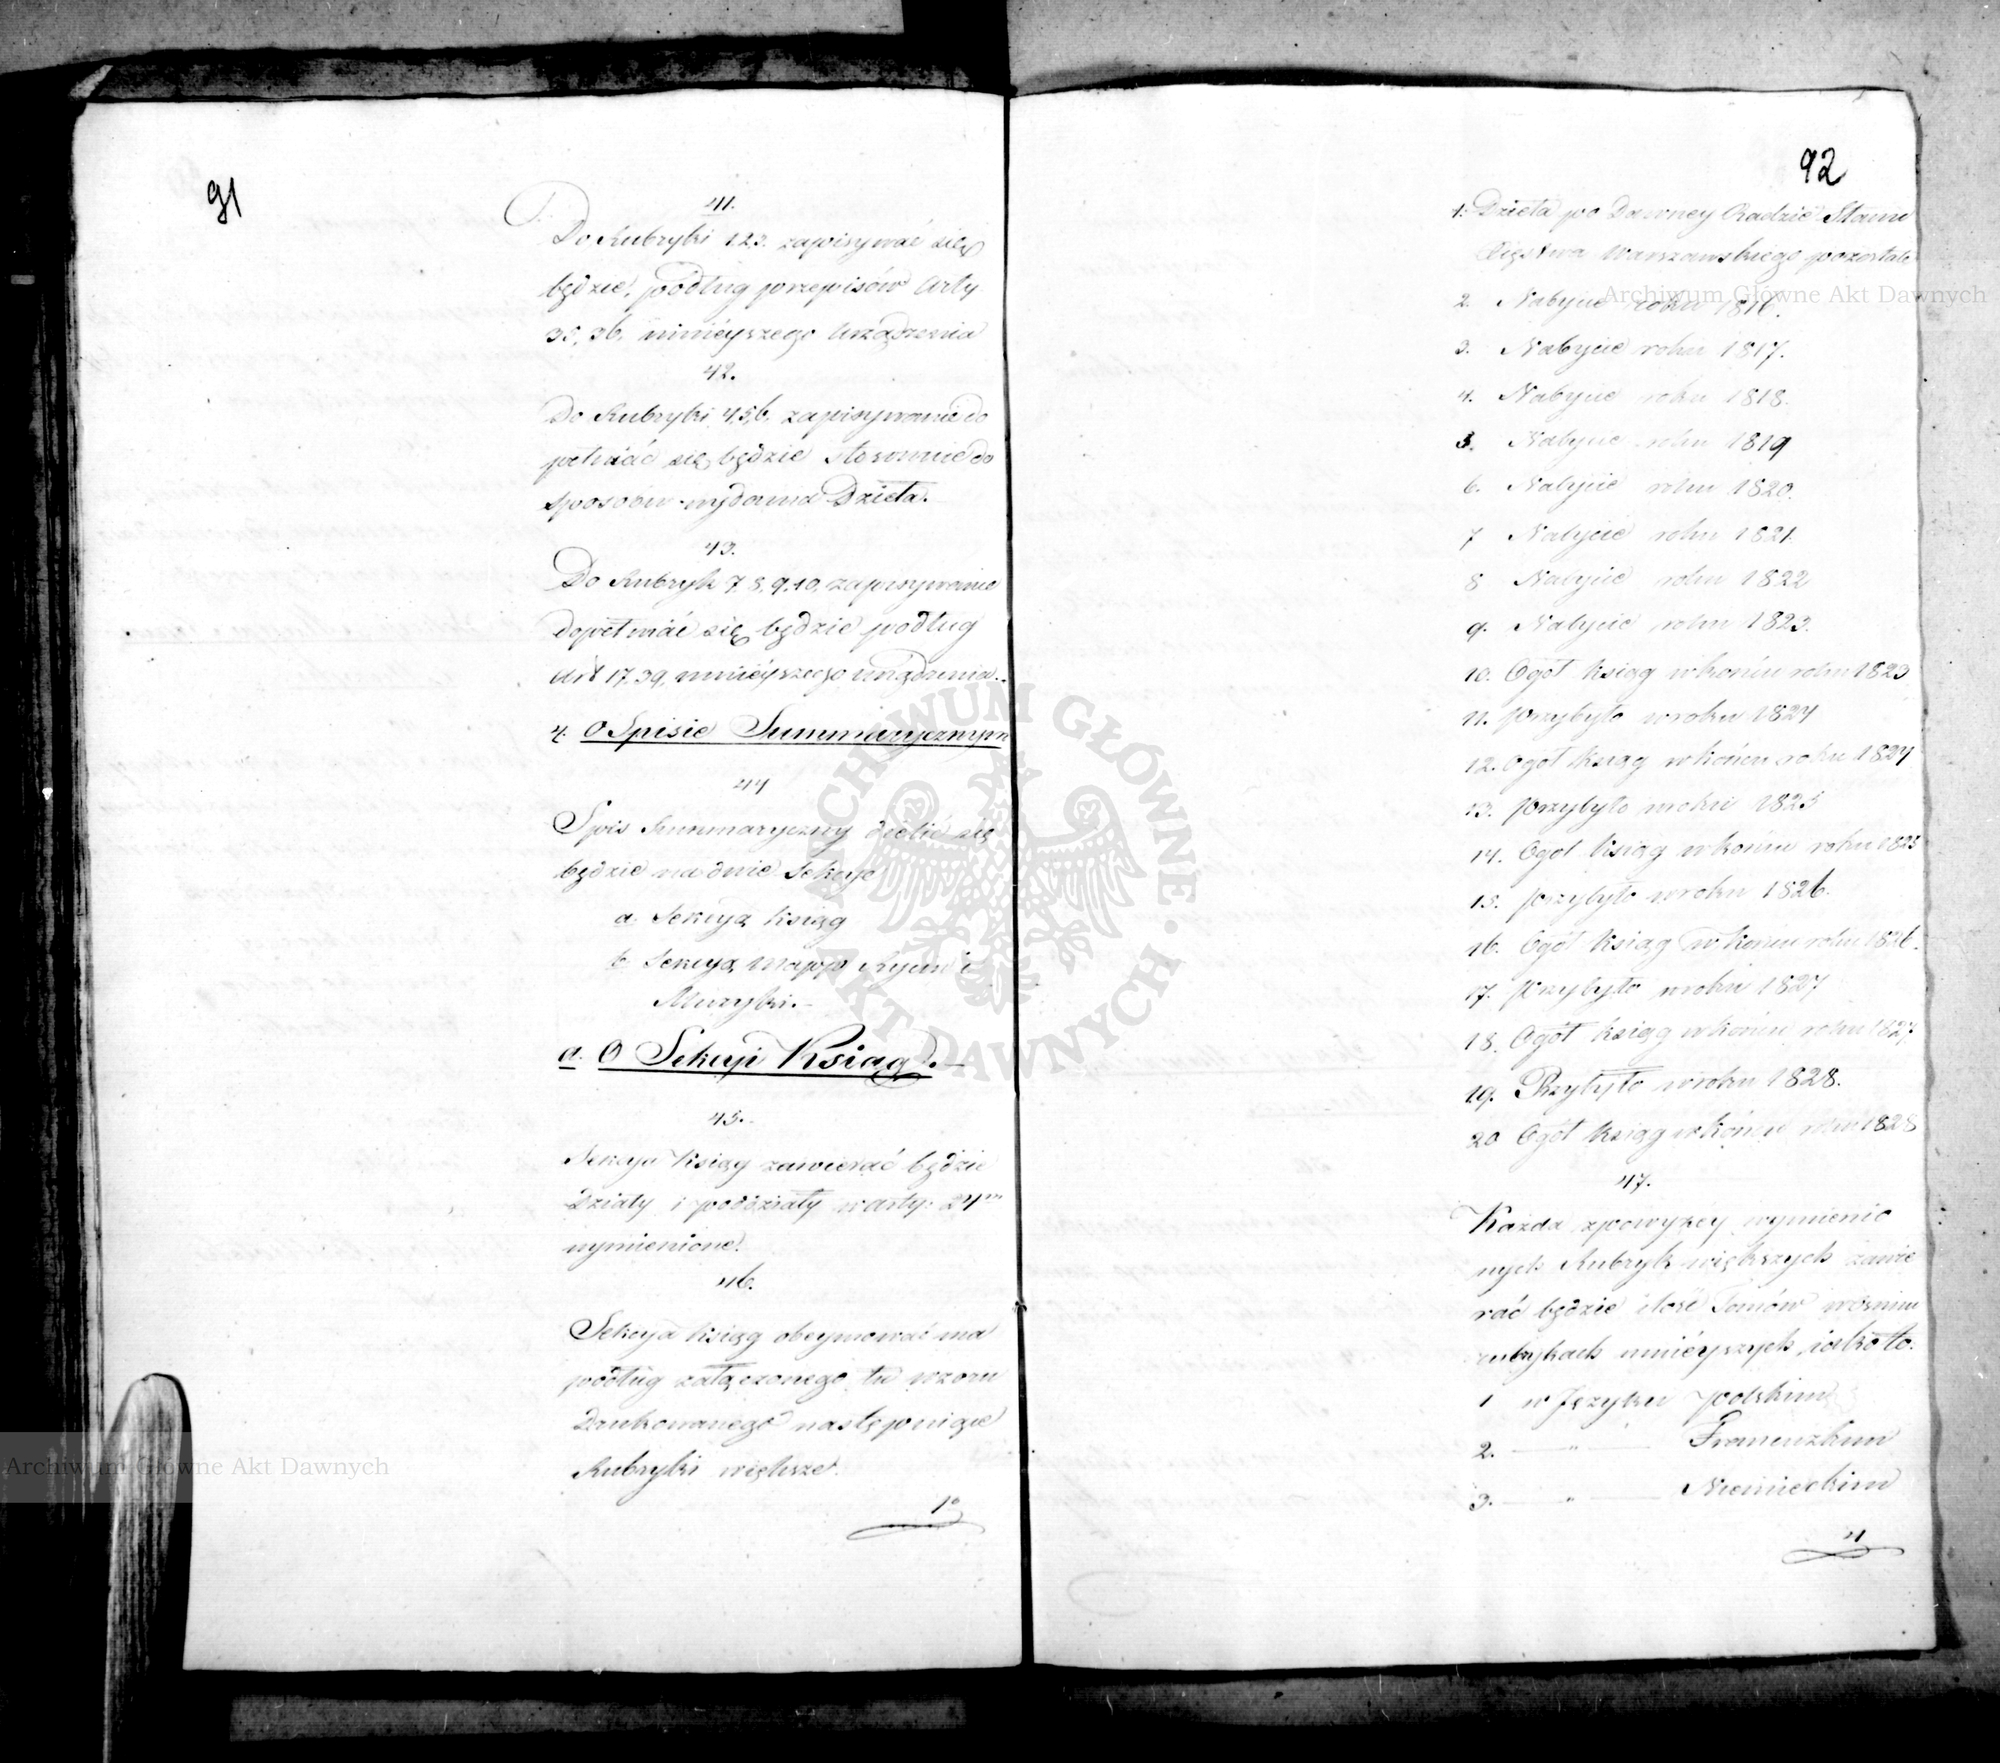 91
41.
Do Rubryki 1.2.3. zapisywać się
będzie, podług przepisów Arty
35, 36, ninieyszego Urządzenia
42.
Do Rubryki 4,5,6, zapisywanie do
pełniać się będzie stosownie do
sposobu wydania Dzieła.
43.
Do Rubryk 7. 8, 9, 10, zapisywanie
dopełniać się będzie podług
Art 17. 39, ninieyszego urządzenia.
4. O Spisie Summarycznym
44
Spis Summaryczny dzielić się
będzie na dwie Sekcye
a. Sekcyą Ksiąg
b. Sekcyą Mapp Rycin i
Muzyki. –
a. O Sekcyi Ksiąg. –
45. –
Sekcya Ksiąg zawierać będzie
Działy i poddziały w Arty: 24m
wymienione.
46.
Sekcya Ksiąg obeymować ma
podług załączonego tu wzoru
Drukowanego następuiące
Rubryki większe.
1o
92
1. Dzieła po Dawney Radzie Stanu
Xięstwa Warszawskiego pozostałe
2. Nabycie roku 1816.
3. Nabycie roku 1817.
4. Nabycie roku 1818.
5. Nabycie roku 1819
6. Nabycie roku 1820.
7 Nabycie roku 1821.
8 Nabycie roku 1822
9. Nabycie roku 1823.
10. Ogół Ksiąg w końcu roku 1823
11. przybyło w roku 1824
12. Ogół Ksiąg w końcu roku 1824
13. przybyło w roku 1825
14. Ogół Ksiąg w końcu roku 1825
15. przybyło w roku 1826.
16. Ogół Ksiąg w końcu roku 1826.
17. przybyło w roku 1827
18. Ogół Ksiąg w końcu roku 1827
19. Przybyło w roku 1828.
20 Ogół Ksiąg w końcu roku 1828
47.
Każda z powyżey wymienio
nych Rubryk większych zawie
rać będzie ilość Tomów w ośmiu
rubrykach mnieyszych, iako to.
1 w Języku polskim
2. — " — Francuzkim
3. — " — Niemieckim
4
Archiwum Główne Akt Dawnych
Archiwum Główne Akt Dawnych
ARCHIWUM GŁÓWNE AKT DAWNYCH